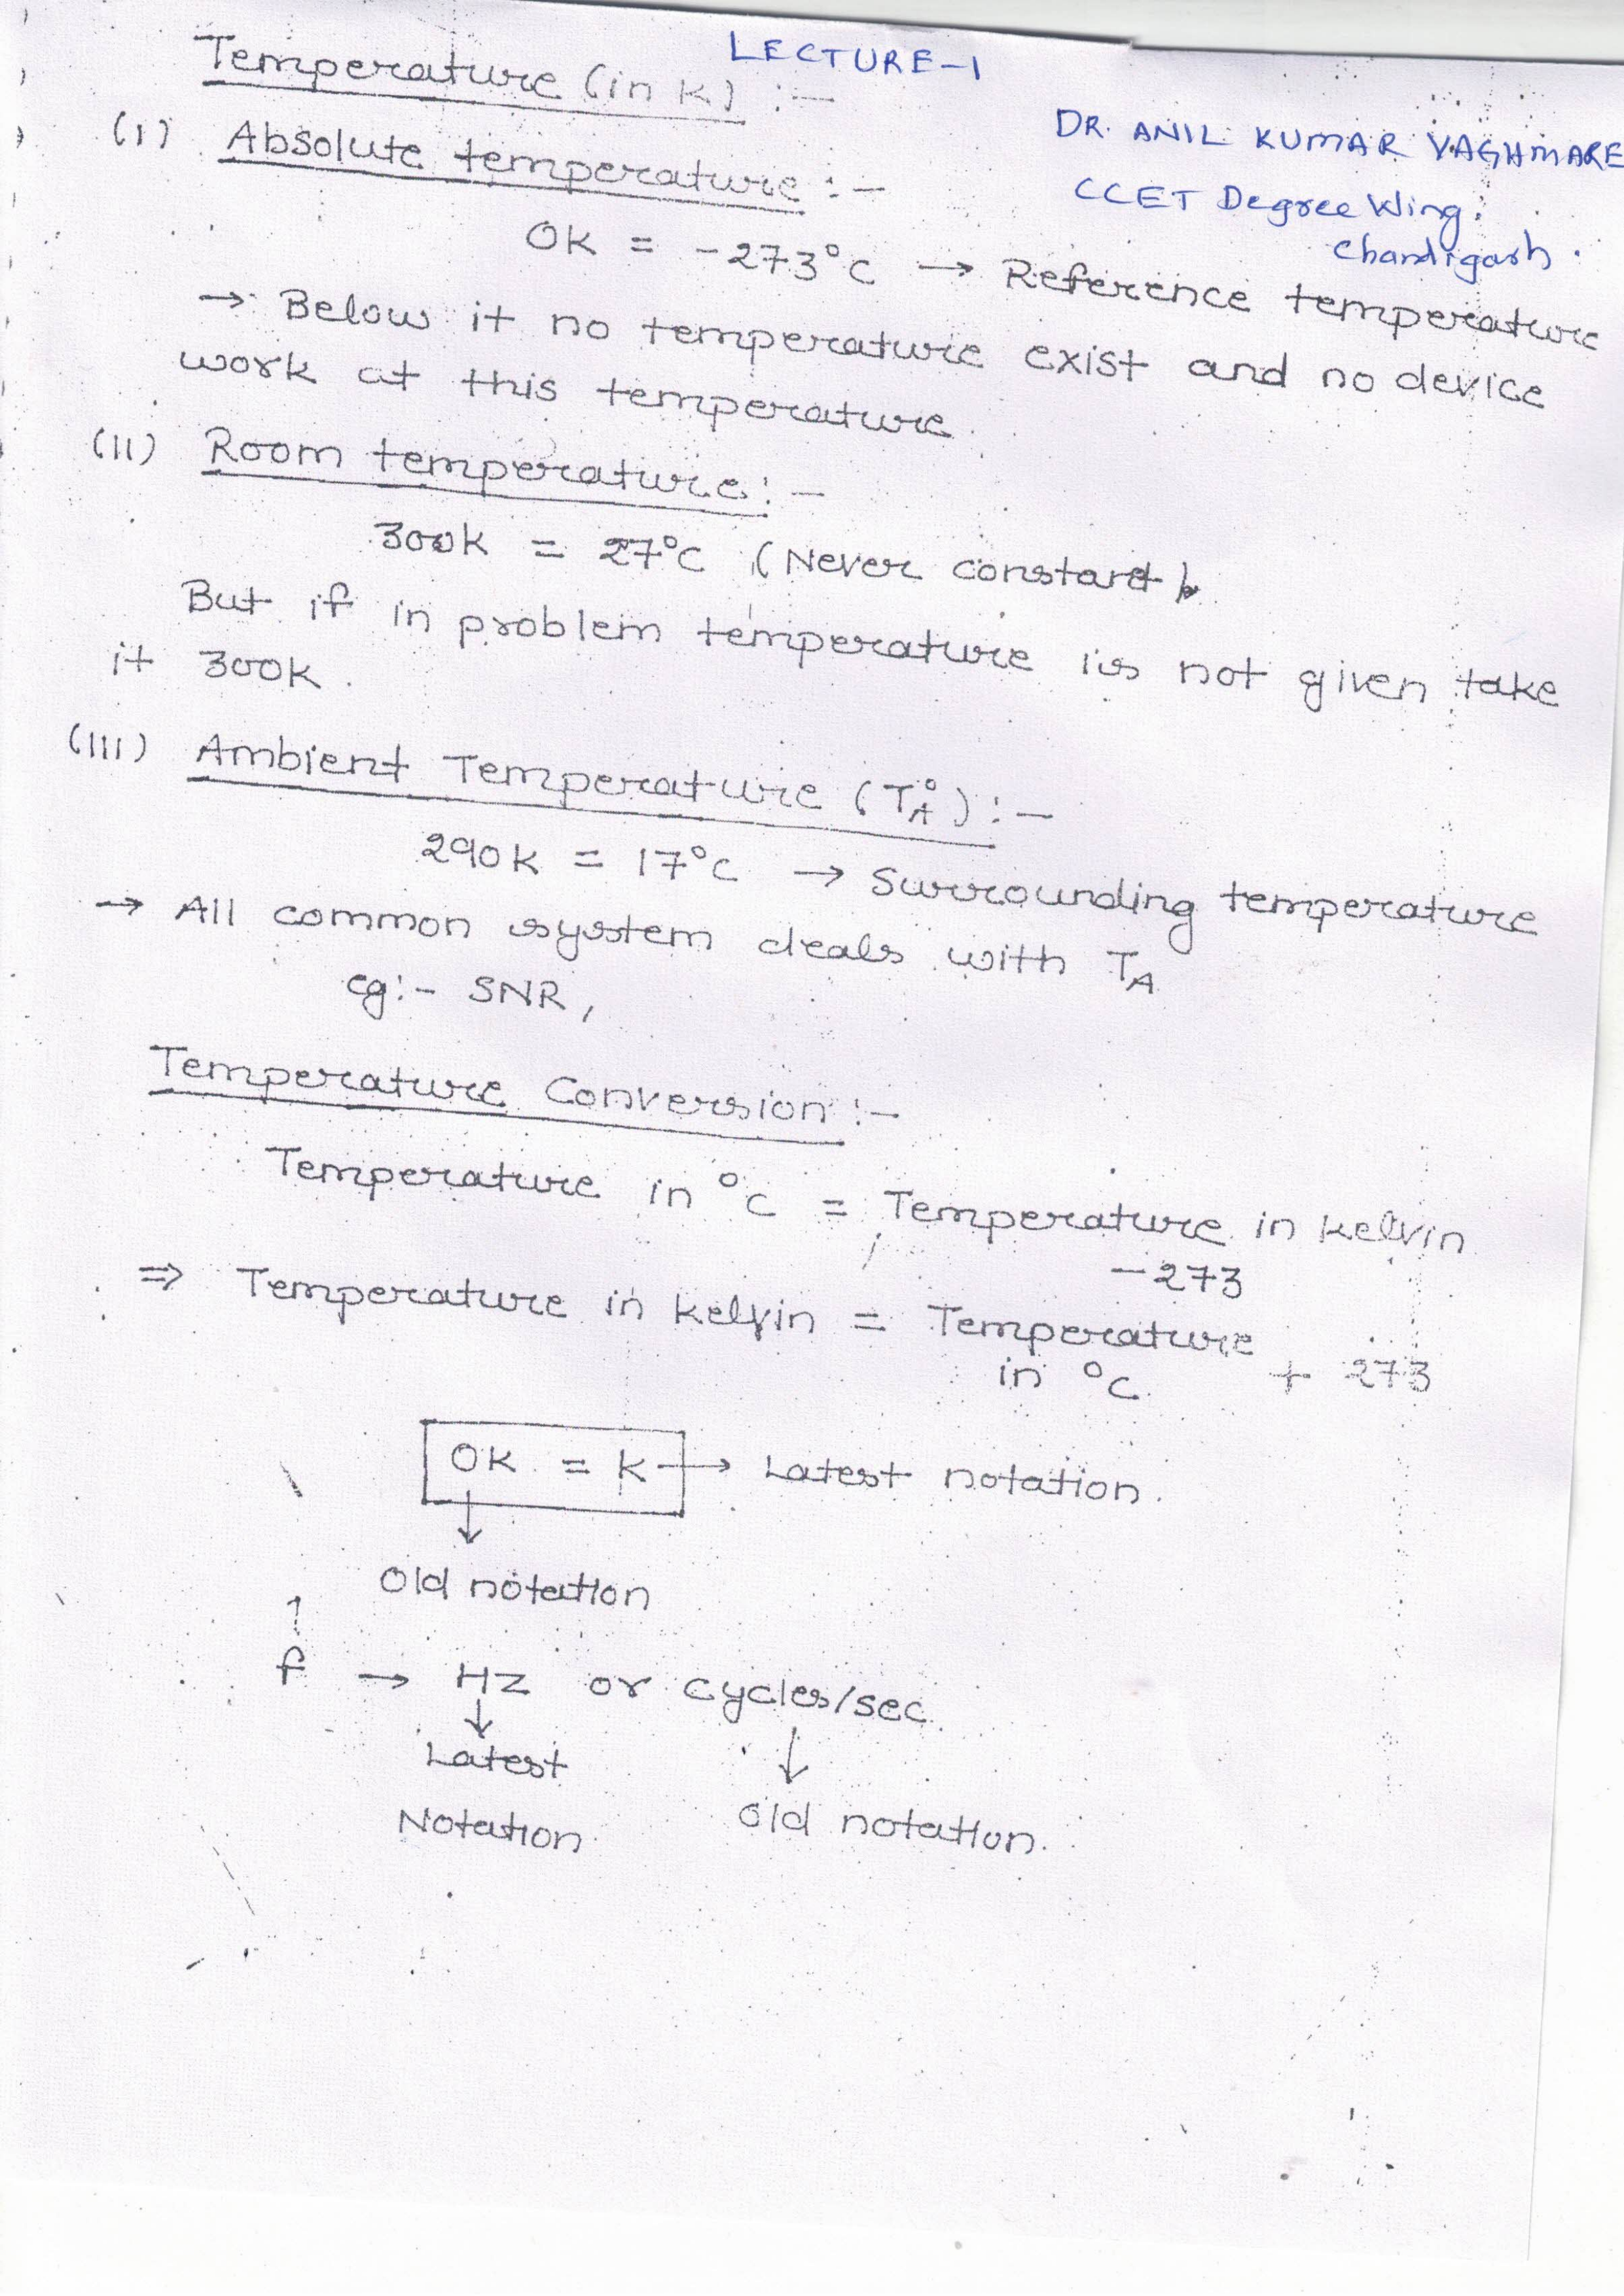 LECTURE-1
Temperature (in K) :-
DR. ANIL KUMAR VAGHMARE
CCET Degree Wing,
Chandigarh.
(I) Absolute temperature :-
0K = -273°C → Reference temperature
→ Below it no temperature exist and no device
work at this temperature.
(II) Room temperature :-
300K = 27°C (Never constant).
But if in problem temperature is not given take
it 300K.
(III) Ambient Temperature (TA°) :-
290K = 17°C → Surrounding temperature
→ All common system deals with TA
eg:- SNR,
Temperature Conversion :-
Temperature in °C = Temperature in Kelvin
-273
⇒ Temperature in Kelvin = Temperature
in °C + 273
0K = K → Latest notation.
↓
Old notation
↑
f → HZ or cycles/sec.
↓ ↓
Latest
Notation. Old notation.